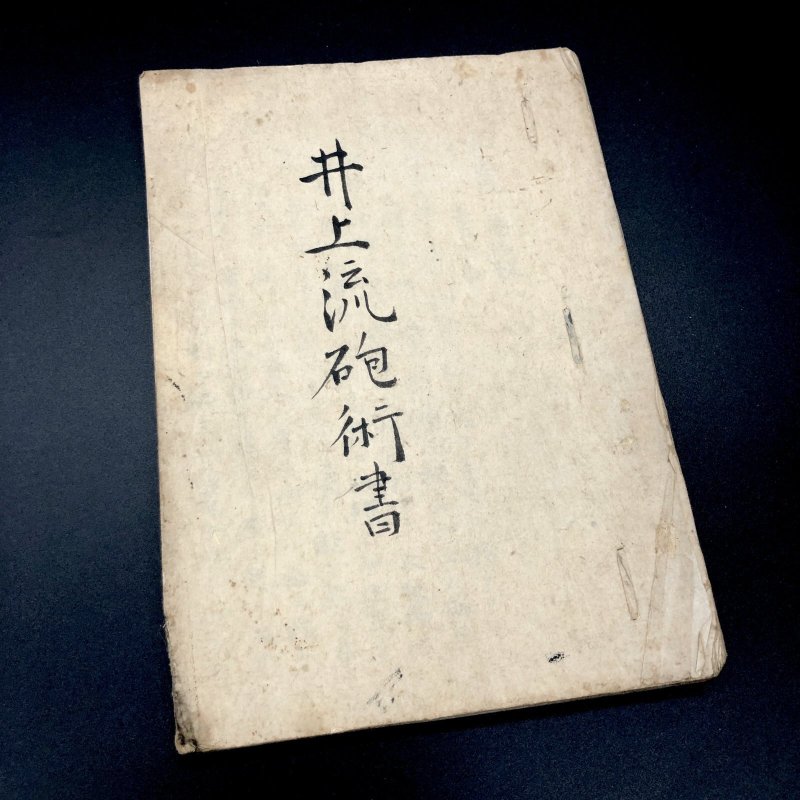 井上流砲術書